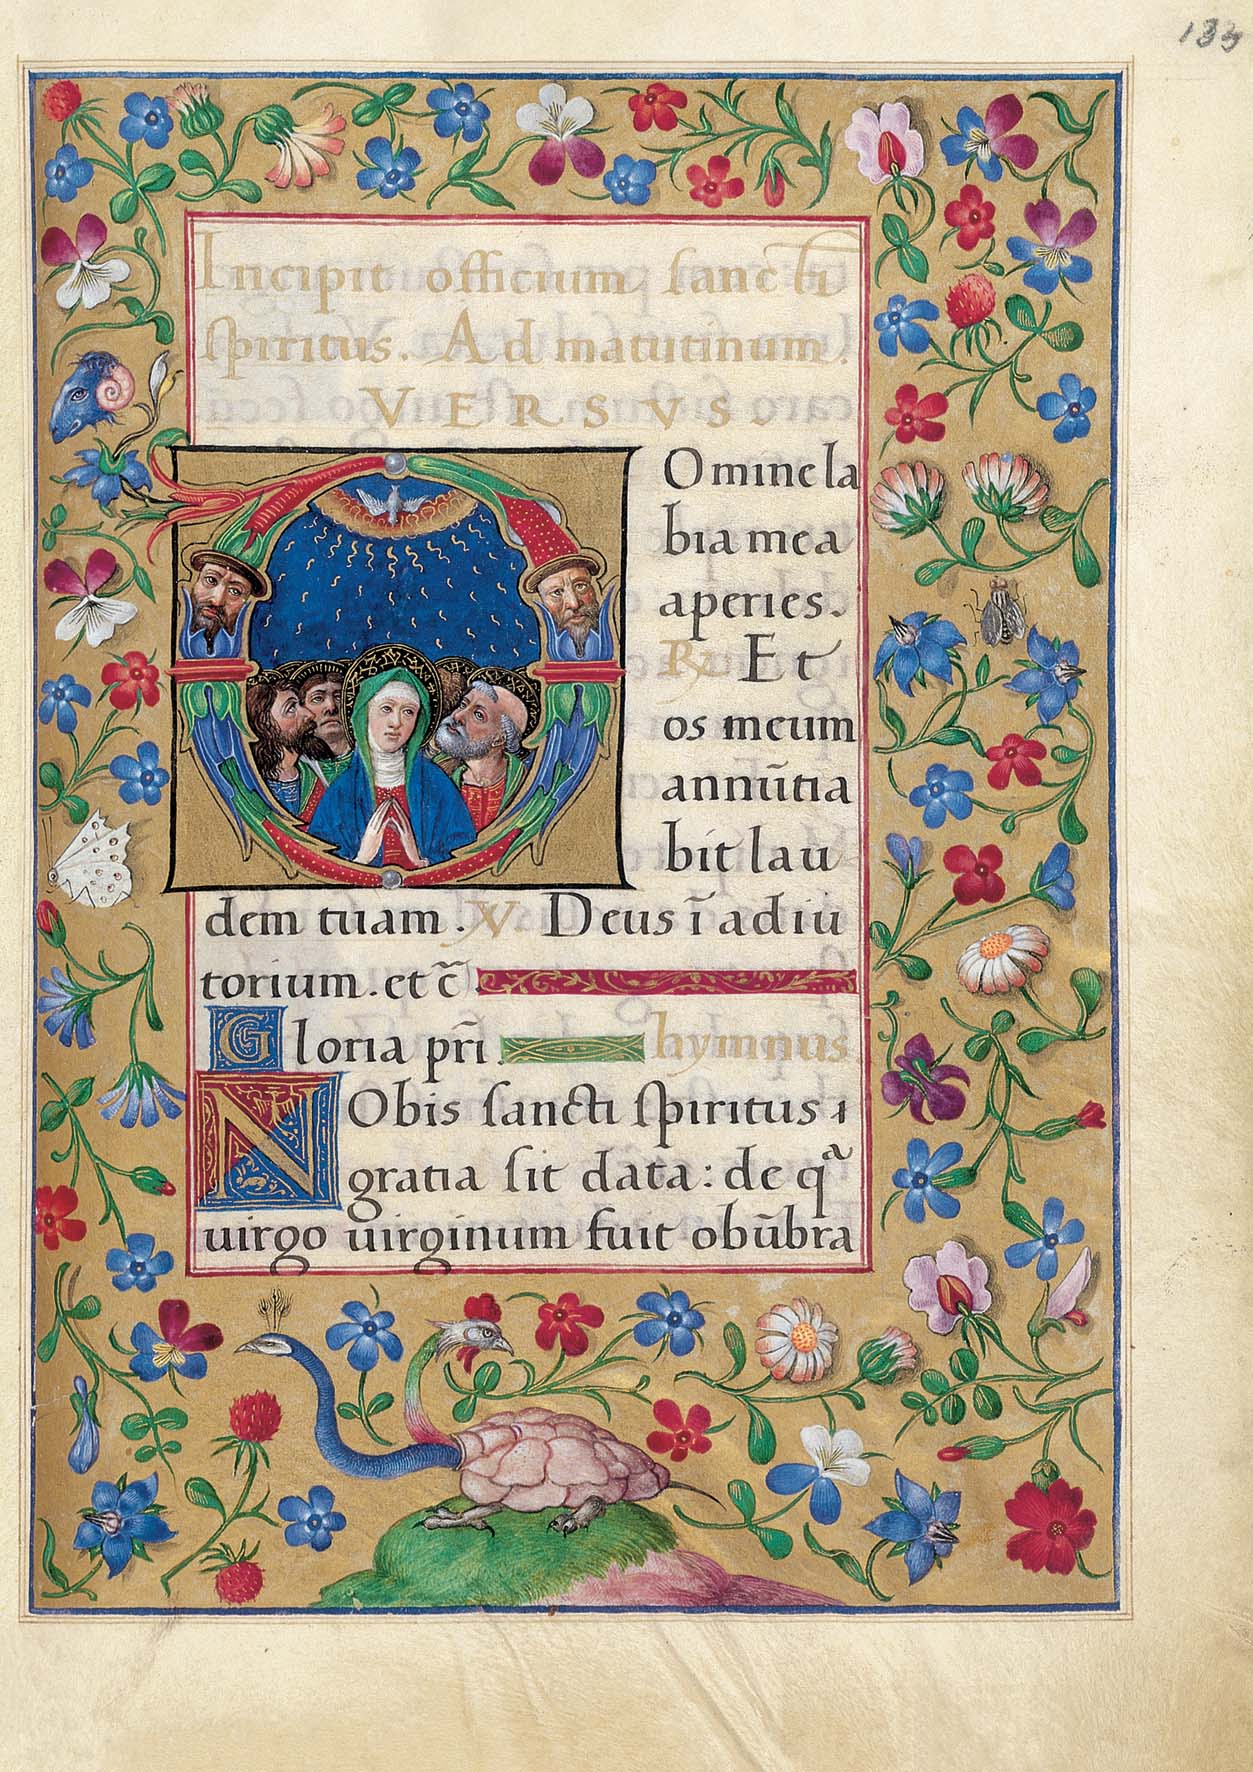 133
Incipit officium sancti
spiritus. Ad matutinum.
VERSVS.
DOmine la
bia mea
aperies.
℟ Et
os meum
annūtia
bit lau
dem tuam. ℣ Deus ī adiu
torium. et c̄.
Gloria pr̄i. hymnus
NObis sancti spiritus ı
gratia sit data: de qᵃ
uirgo uirginum fuit obūbra